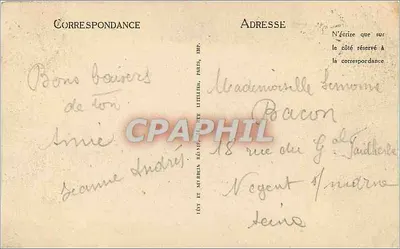 CORRESPONDANCE
ADRESSE
N'écrire que sur
le côté réservé à
la correspondance
Bons baisers
de ton
amie
Jeanne André
LÉVY ET NEURDEIN RÉUNIS, PARIS, IMP.
Mademoiselle Simone
Bacon
18 rue du Gal Faidherbe
Nogent s/ marne
Seine
CPAPHIL